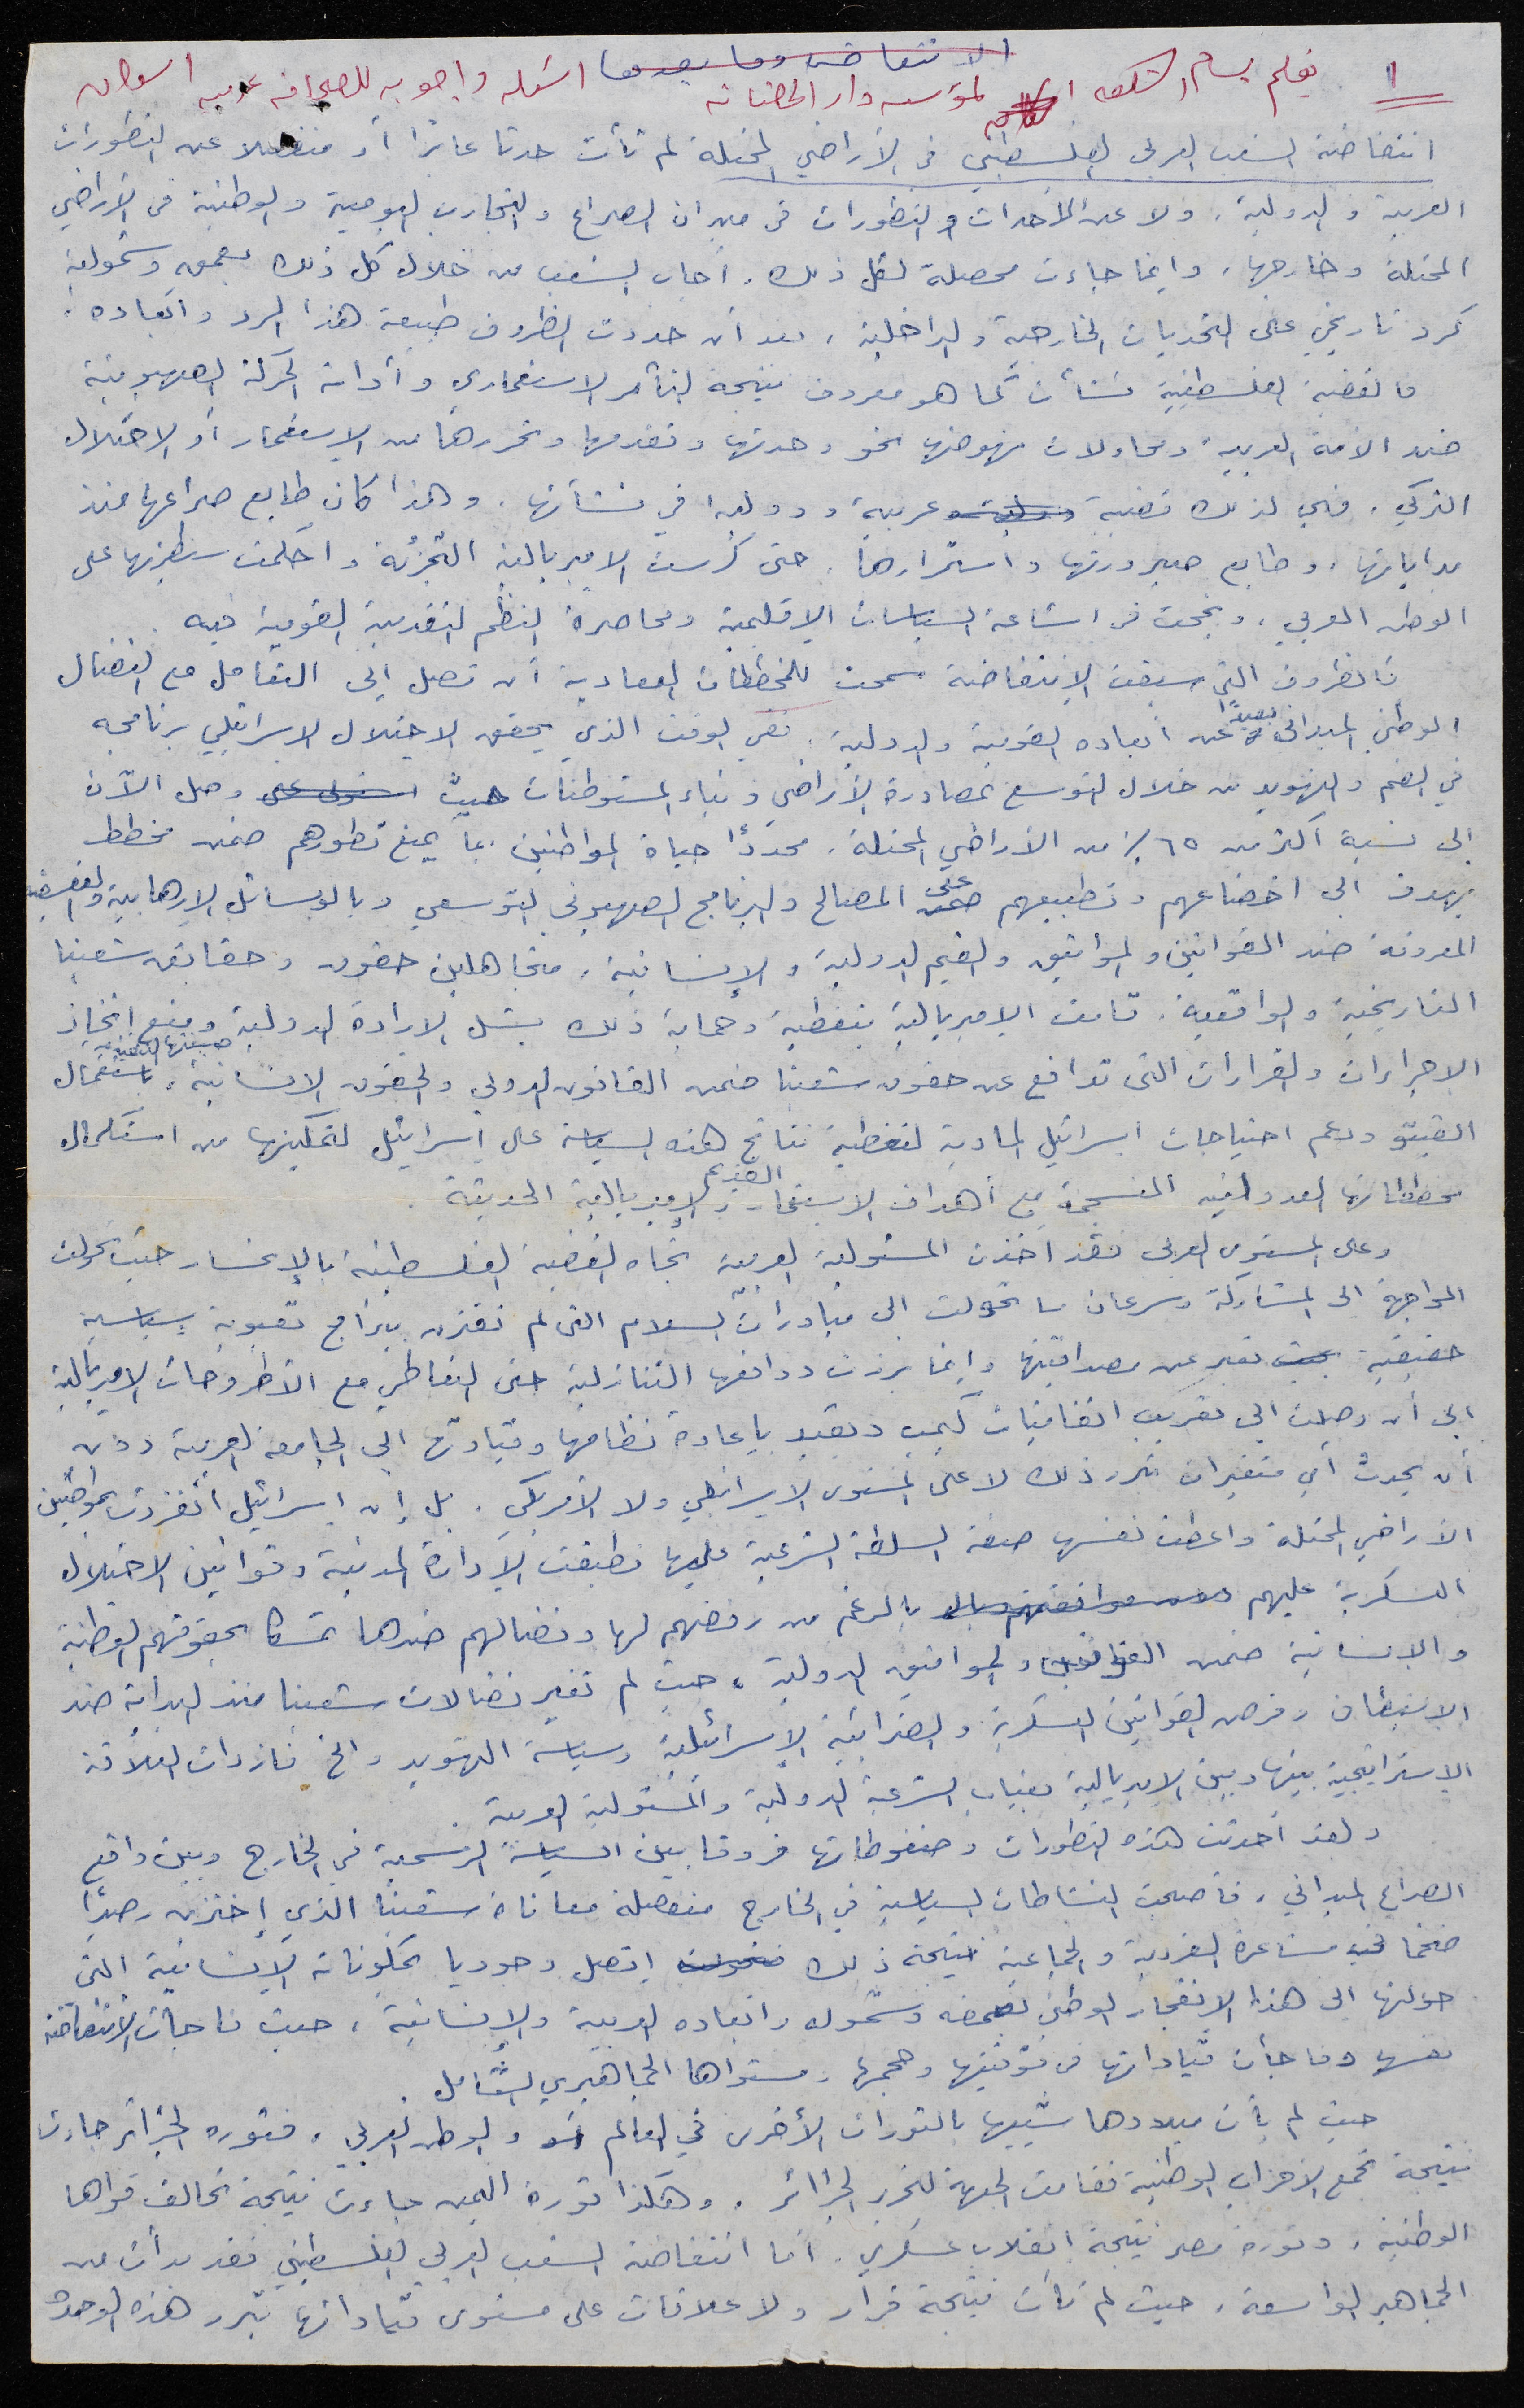 الانتفاضة وما بعدها
١ بقلم بسام الشكعه لمؤسسه دار الحضانه اسئله واجوبه للصحافه عربيه
انتفاضة الشعب العربي الفلسطيني في الأراضي المحتلة لم تأت حدثا عابرًا أو منفصلا عن التطورات
العربية والدولية، ولا عن الأحداث والتطورات في ميدان الصراع والتجارب اليومية والوطنية في الأراضي
المحتلة وخارجها، وإنما جاءت محصلة لكل ذلك. أجاب الشعب من خلال كل ذلك بعمق وشمولية
كرد تاريخي على التحديات الخارجية والداخلية، بعد أن حددت الظروف طبيعة هذا الرد وأبعاده.
فالقضية الفلسطينية نشأت كما هو معروف نتيجة التآمر الاستعماري وأداته الحركة الصهيونية
ضد الأمة العربية ومحاولات نهوضها نحو وحدتها وتقدمها وتحررها من الاستعمار أو الاحتلال
التركي. فهي لذلك قضية عربية ودولية في نشأتها. وهذا كان طابع صراعها منذ
بداياتها، وطابع صيرورتها واستمرارها. حتى كرست الامبريالية التجزئة واحكمت سيطرتها على
الوطن العربي، ونجحت في اشاعة السياسات الإقليمية ومحاصرة النظم التقدمية القومية فيه.
فالظروف التي سبقت الإنتفاضة سمحت للمخططات المعادية أن تصل إلى التعامل مع النضال
الوطني الميداني بعيدًا عن أبعاده القومية والدولية. ففي الوقت الذي يحقق الاحتلال الاسرائيلي برنامجه
في الضم والتهويد من خلال التوسع بمصادرة الأراضي وبناء المستوطنات حيث وصل الآن
إلى نسبة أكثر من ٦٥٪ من الأراضي المحتلة. محددًا حياة المواطنين بما يمنع تطورهم ضمن مخطط
يهدف الى اخضاعهم وتطبيعهم على المصالح والبرنامج الصهيوني التوسعي وبالوسائل الإرهابية والقمعية
المعروفة ضد القوانين والمواثيق والقيم الدولية والإنسانية، متجاهلين حقوق وحقائق شعبنا
التاريخية والواقعية. قامت الامبريالية بتغطية وحماية ذلك بشل الإرادة الدولية ومنع إتخاذ
الاجراءات والقرارات التي تدافع عن حقوق شعبنا ضمن القانون الدولي والحقوق الانسانية، باستعمال
الفيتو ودعم احتياجات اسرائيل المادية لتغطية نتائج هذه السياسة على إسرائيل لتمكينها من استكمال
مخططاتها العدوانية المنسجمة مع أهداف الاستعمار القديم والإمبريالية الحديثة.
وعلى المستوى العربي فقد اخذت المسئولية العربية تجاه القضية الفلسطينية بالإنحسار حيث تحولت
المواجهة الى المشاركة وسرعان ما تحولت الى مبادرات السلام التي لم تقترن ببرامج تعبوية سياسية
حقيقية تعبر عن مصداقيتها وإنما برزت دوافعها التنازلية حتى التعاطي مع الأطروحات الامبريالية
إلى أن وصلت الى تعريب اتفاقيات كمب ديفيد بإعادة نظامها وقيادتها الى الجامعه العربية دون
أن يحدث أي متغيرات تبرر ذلك لا على المستوى الاسرائيلي ولا الأمريكي. بل إن اسرائيل انفردت بمواطنين
الأراضي المحتلة واعطت نفسها صفة السلطة الشرعية عليها فطبقت الإدارة المدنية وقوانين الاحتلال
العسكرية عليهم بالرغم من رفضهم لها ونضالهم ضدها تمسكا بحقوقهم الوطنية
والإنسانية ضمن القوانين والمواثيق الدولية، حيث لم تغير نضالات شعبنا منذ البداية ضد
الاستيطان وفرض القوانين العسكرية والضرائبية الإسرائيلية وسياسة التهويد والخ فازدادت العلاقة
الاستراتيجية بينها وبين الامبريالية بغياب الشرعية الدولية والمسئولية العربية
ولقد أحدثت هذه التطورات وضغوطاتها فروقا بين السياسة الرسمية في الخارج وبين واقع
الصراع الميداني، فأصبحت النشاطات السياسية في الخارج منفصلة معاناة شعبنا الذي إختزن رصيدًا
ضخما في مشاعره الفردية والجماعية نتيجة ذلك إتصل وجوديا بمكوناته الإنسانية التي
حولتها الى هذا الإنفجار الوطني بعمقه وشموله وابعاده العربية والإنسانية، حيث فاجأت الإنتفاضة
نفسها وفاجأت قياداتها في توقيتها وحجمها ومستواها الجماهيري الشامل.
حيث لم يأت ميلادها شبيها بالثورات الأخرى في العالم والوطن العربي، فثوره الجزائر جاءت
نتيجة تجمع الاحزاب الوطنية فقامت الجبهة لتحرير الجزائر. وهكذا ثورة اليمن جاءت نتيجة تحالف قواها
الوطنية، وثورة مصر نتيجة إنقلاب عسكري. أما انتفاضة الشعب العربي الفلسطيني فقد بدأت من
الجماهير الواسعة، حيث لم تأت نتيجة قرار ولا علاقات على مستوى قياداتها تبرر هذه الوحدة